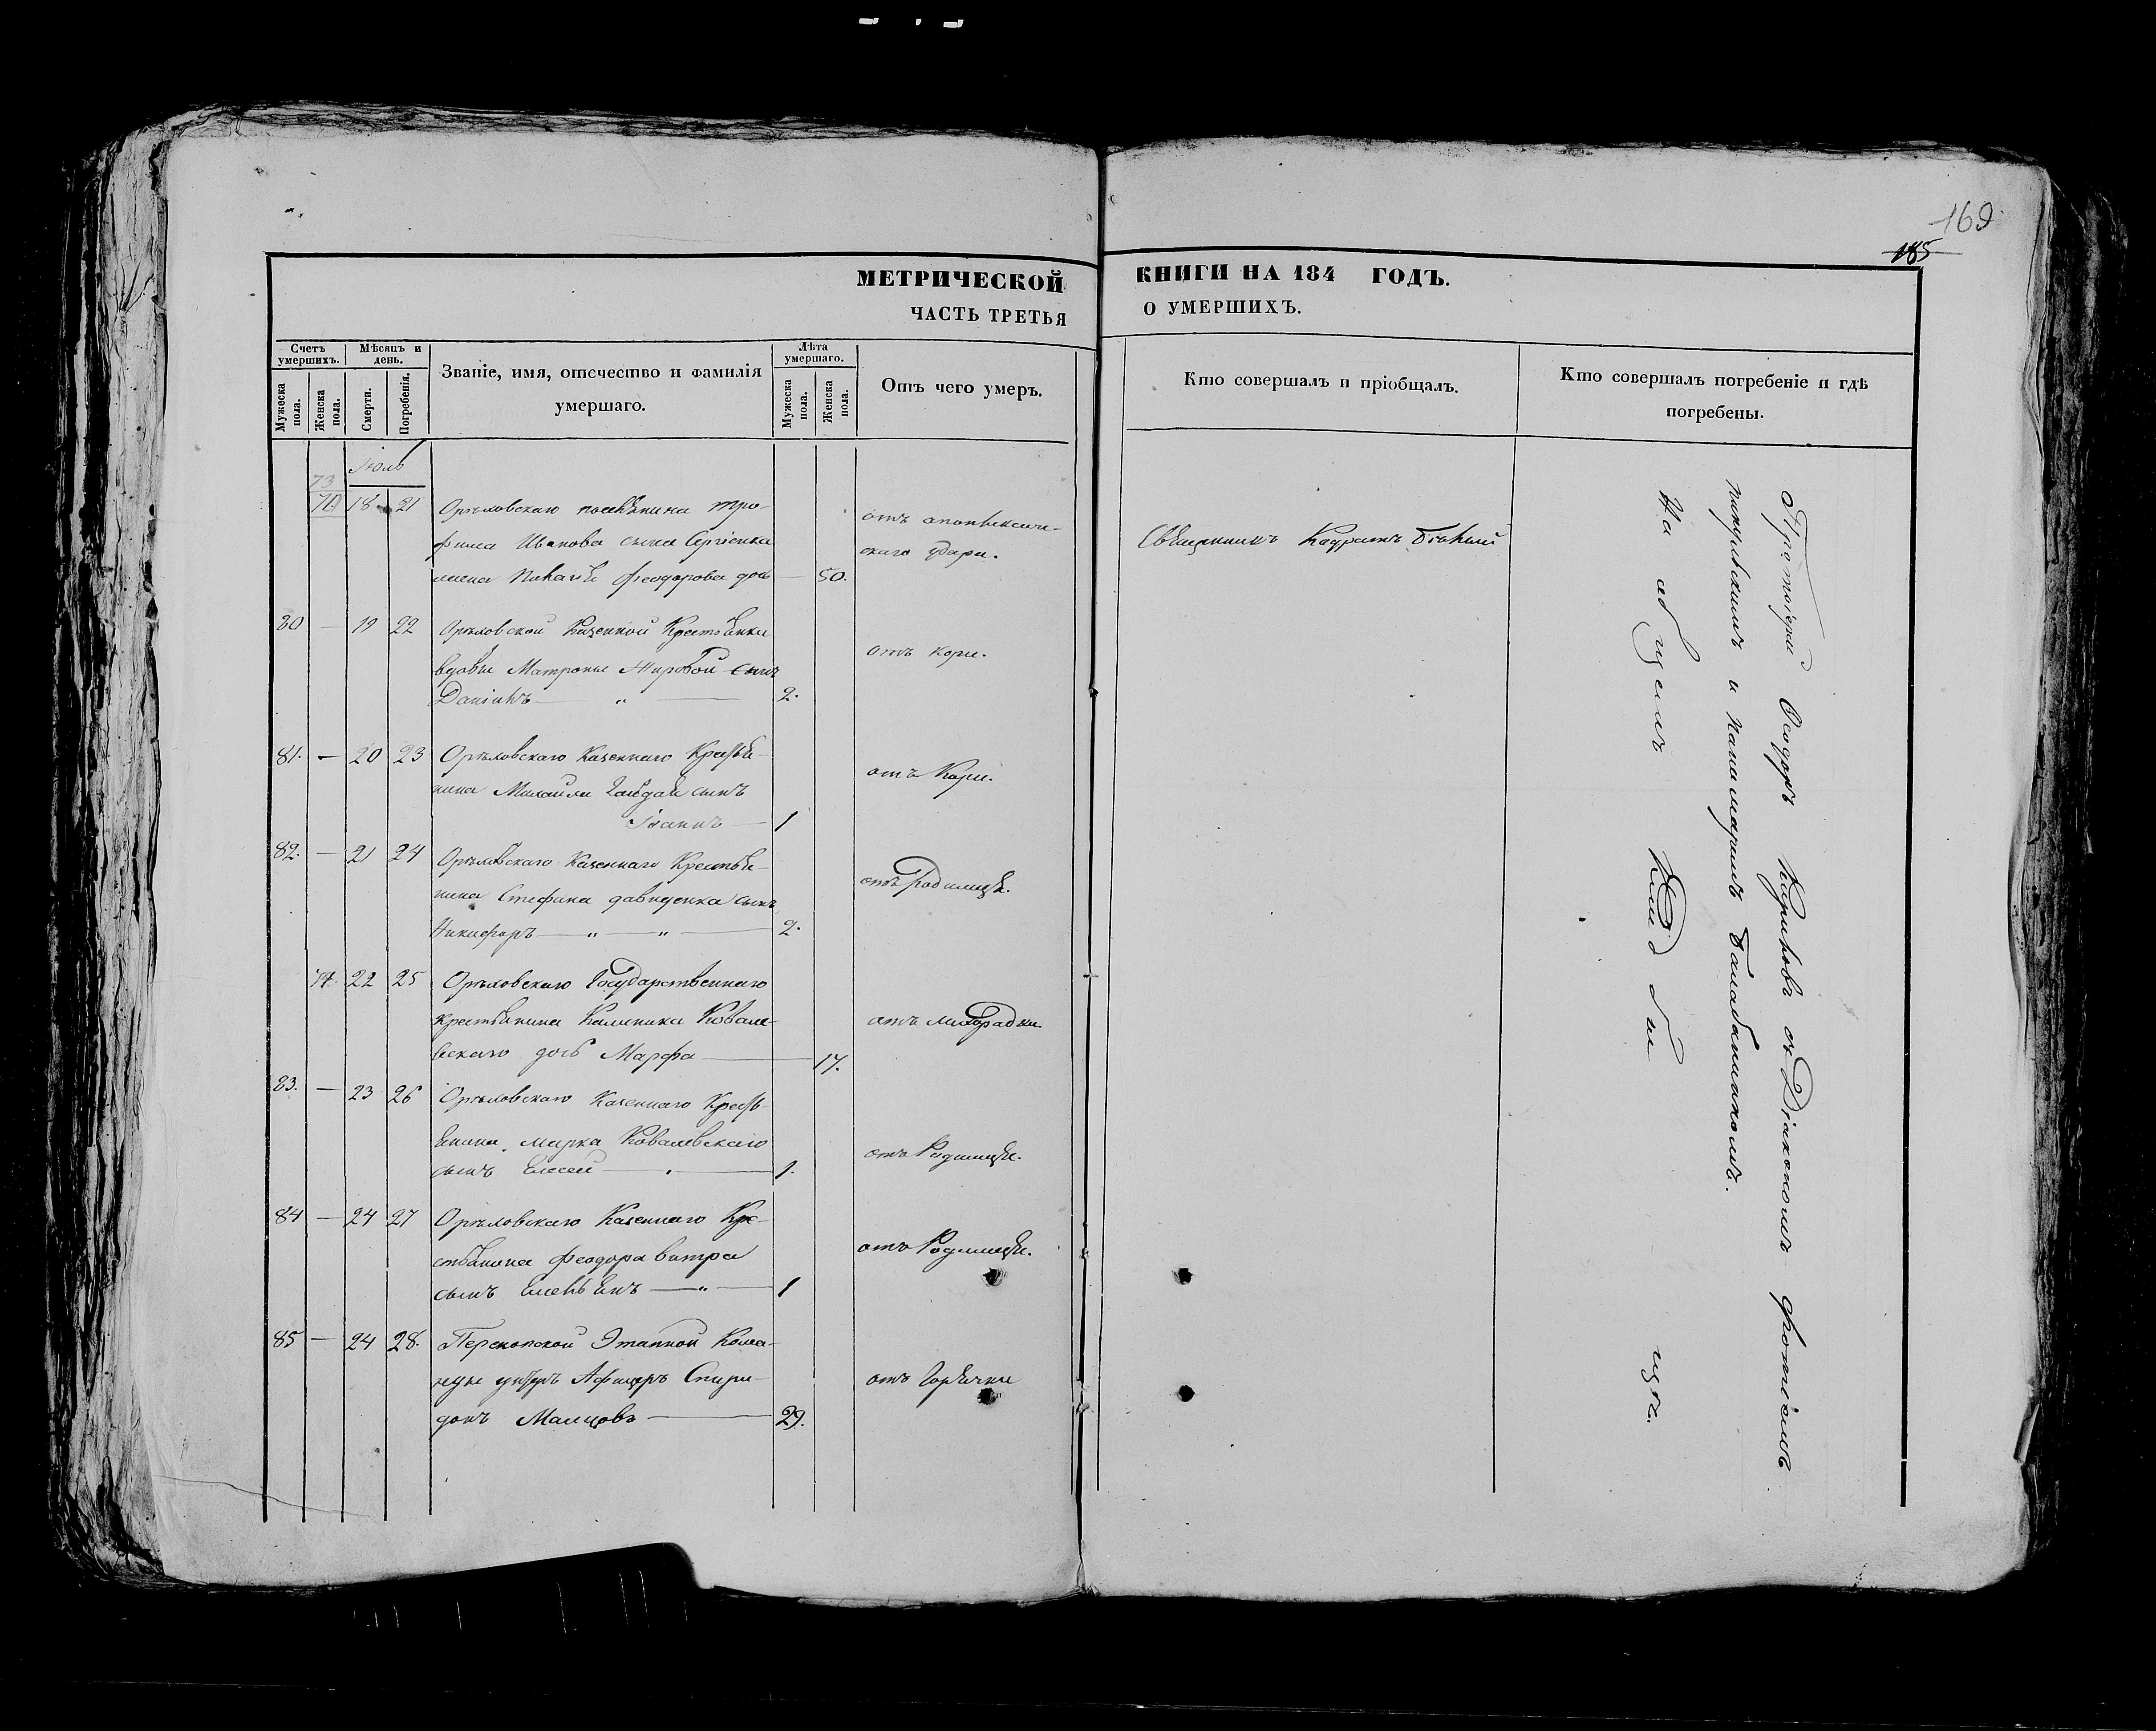 169
185
МЕТРИЧЕСКОЙ КНИГИ НА 184 ГОДЪ.
ЧАСТЬ ТРЕТЬЯ О УМЕРШИХЪ.
Счетъ умершихъ.
Мѣсяцъ и день.
Званіе, имя, отечество и фамилія умершаго.
Лѣта умершаго.
Отъ чего умеръ.
Кто совершалъ и пріобщалъ.
Кто совершалъ погребеніе и гдѣ погребены.
Мужеска пола.
Женска пола.
Смерти.
Погребенія.
Мужеска пола.
Женска пола.
Іюль
73
70 18 21 Орѣховскаго поселянина Тро-
фима Иванова сына Сергіенка
жена Феодорова дочь — 50.
отъ апоплексиче-
скаго удара.
Священникъ
80 — 19 22 Орѣховской Казенной Крестьянки
вдовы Матроны Жировой сынъ
Даніилъ — " — 2.
отъ кори.
81. — 20 23 Орѣховскаго Казеннаго Крестья-
нина Михаила Гайдая сынъ
Іоаннъ — 1
отъ Кори.
82. — 21 24 Орѣховскаго Казеннаго Крестья-
нина Стефана Давиденка сынъ
Никифоръ — " — " — 2.
отъ Родимца.
74. 22 25 Орѣховскаго Государственнаго
крестьянина Калиника Ковале-
вскаго дочь Марфа — 17.
отъ лихорадки.
83. — 23 26 Орѣховскаго Казеннаго Кресть-
янина Марка Ковалевскаго
сынъ Елесей — " — 1.
отъ Родимца.
84 — 24 27 Орѣховскаго Казеннаго Кре-
стьянина Феодора Витра
сынъ — " — 1
отъ Родимца.
85 — 24 28. Перекопской Этапной Кома-
нды унтеръ Афицеръ Спири-
донъ Малцовъ — 29.
отъ Горячки
Протоіерей Феодоръ Кириловъ съ Діакономъ Фотіемъ
Пикульскимъ и Панамаремъ Балабаникомъ.
На общемъ Кладбищѣ.